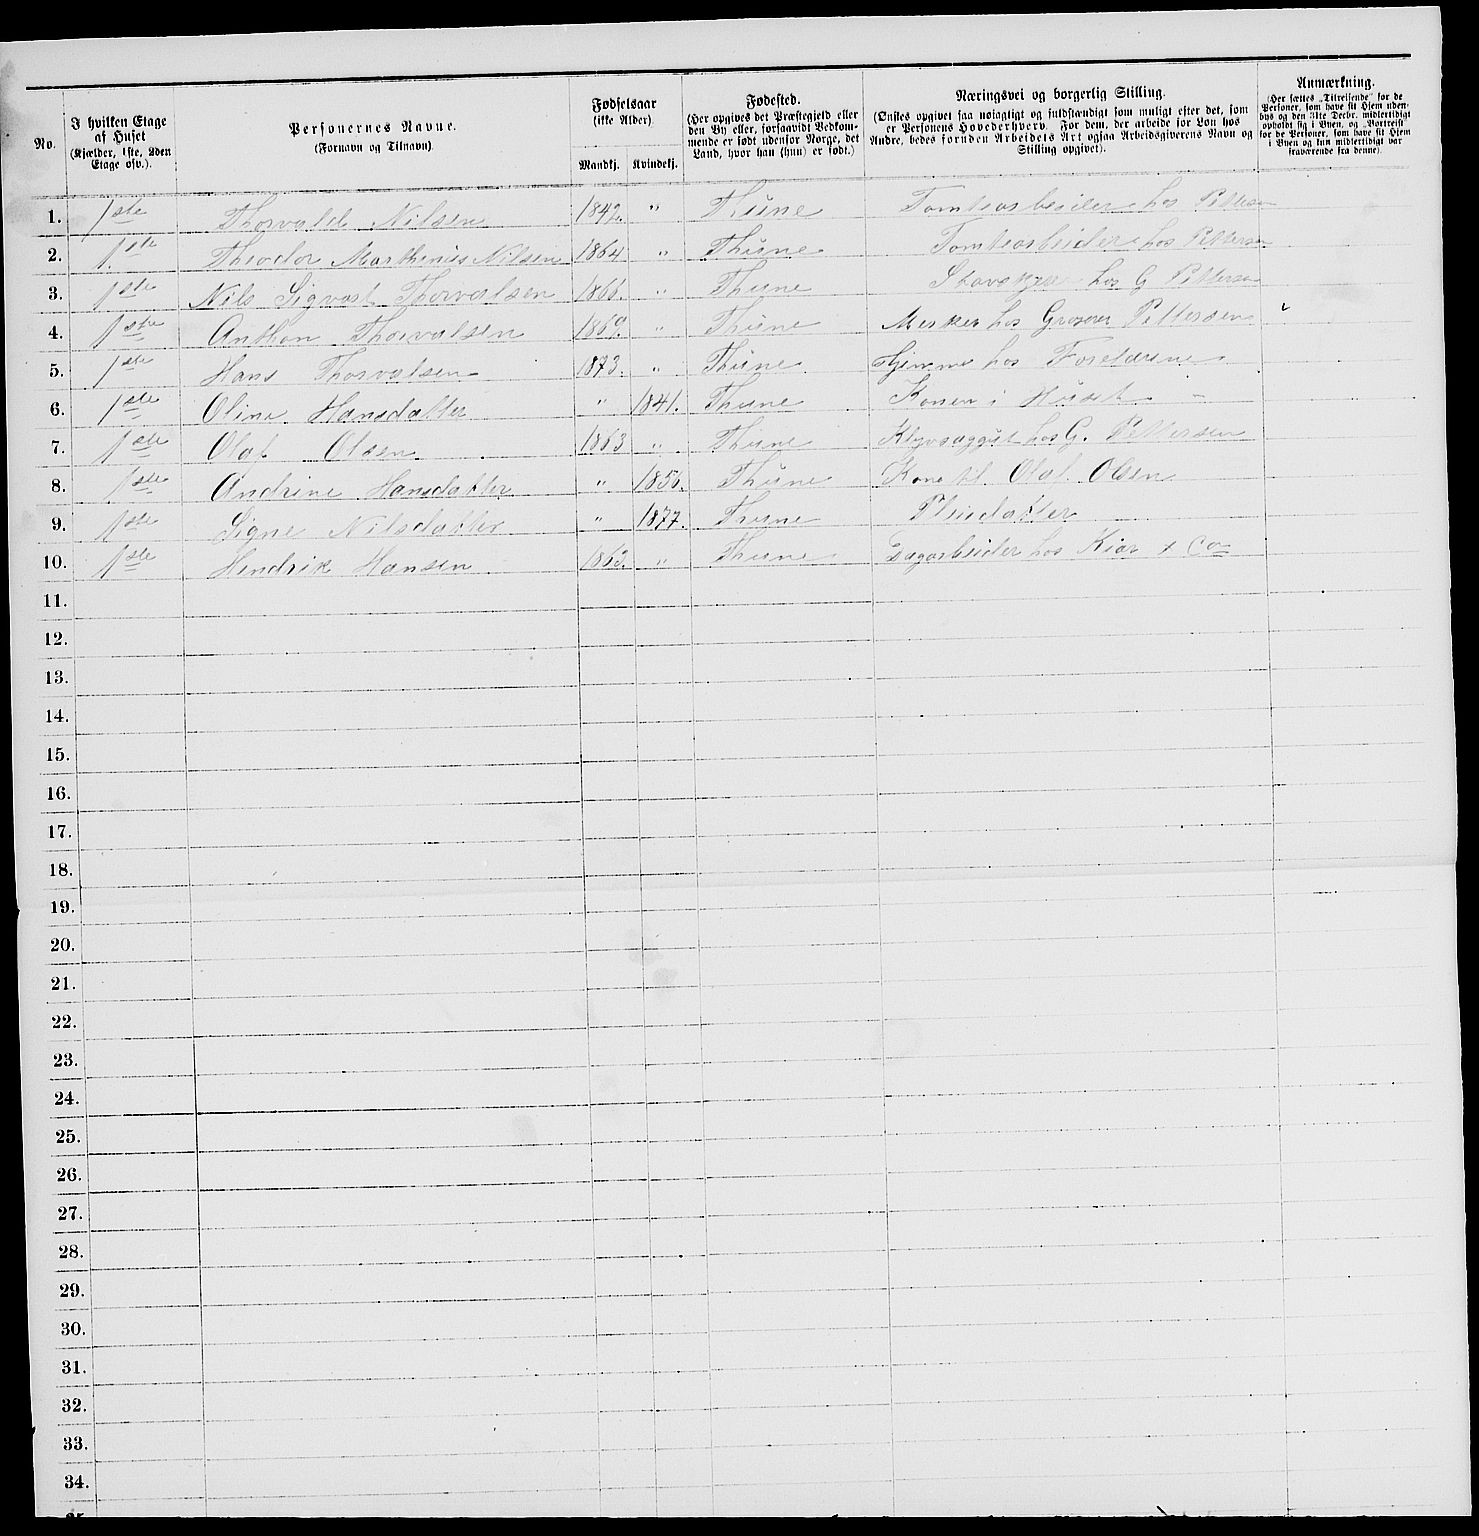 No.
I hvilken Etage
af Huset
(Kjælder, 1ste, 2den
Etage osv.).
Personernes Navne.
(Fornavn og Tilnavn)
Fødselsaar
(ikke Alder).
Mandkj. Kvindekj.
Fødested.
(Her opgives det Præstegjeld eller
den By eller, forsaavidt Vedkom-
mende er født udenfor Norge, det
Land, hvor han (hun) er født.)
Næringsvei og borgerlig Stilling.
(Ønskes opgivet saa nøiagtigt og fuldstændigt som muligt efter det, som
er Personens Hovederhverv. For dem, der arbeide for Løn hos
Andre, bedes foruden Arbeidets Art ogsaa Arbeidsgiverens Navn og
Stilling opgivet).
Anmærkning.
(Her sættes „Tilreisende“ for de
Personer, som have sit Hjem uden-
bys og den 31te Decbr. midlertidigt
opholdt sig i Byen, og „Bortreist“
for de Personer, som have sit Hjem
i Byen og kun midlertidigt var
fraværende fra denne).
1. 1ste Thorvald Nilsen 1842. " Thune Tomtearbeider hos Pettersen
2. 1ste Theodor Marthinus Nilsen 1864 " Thune Tomtearbeider hos Pettersen
3. 1ste Nils Sigvart Thorvalsen 1866. " Thune hos G Pettersen
4. 1ste Anthon Thorvalsen 1869. " Thune Merker hos Groserer Pettersen
5. 1ste Hans Thorvalsen 1873. " Thune Hjemme hos Forældrene
6. 1ste Oline Hansdatter " 1841. Thune Konen i Huset
7. 1ste Olaf Olsen 1863 " Thune hos G. Pettersen
8. 1ste Andrine Hansdatter " 1856. Thune Kone til Olaf Olsen
9. 1ste Signe Nilsdatter " 1877. Thune Pleiedatter
10. 1ste Hendrik Hansen 1863. " Thune Dagarbeider hos Kiær & Co
11.
12.
13.
14.
15.
16.
17.
18.
19.
20.
21.
22.
23.
24.
25.
26.
27.
28.
29.
30.
31.
32.
33.
34.